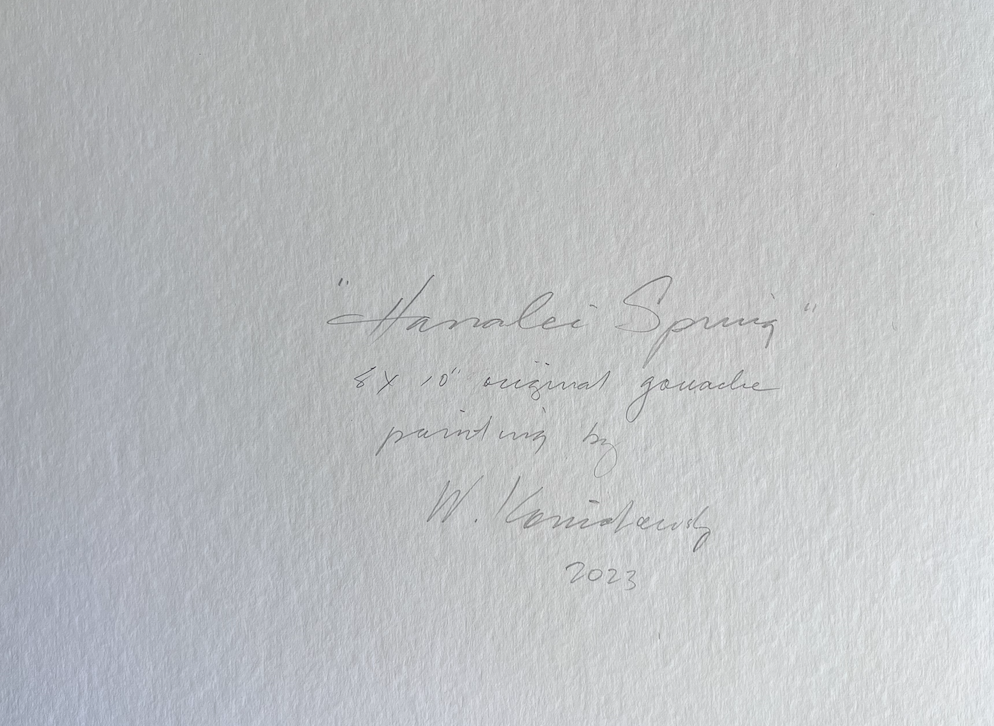 "Hanalei Spring"
8 X 10" original gouache
painting by
W.
2023